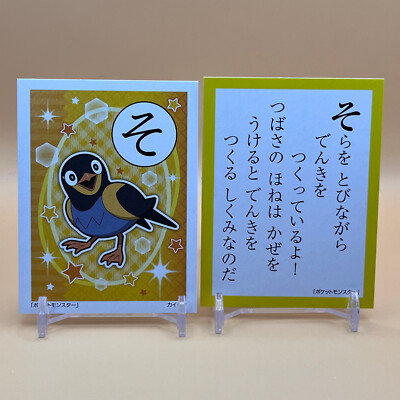 そ
「ポケットモンスター」
カイ
そらを とびながら
でんきを
つくっているよ！
つばさの ほねは かぜを
うけると でんきを
つくる しくみなのだ
「ポケットモンスター」